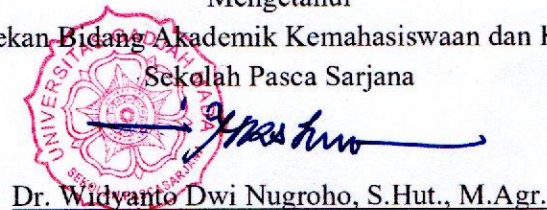 Mengetahui
ekan Bidang Akademik Kemahasiswaan dan K
Sekolah Pasca Sarjana
UNIVERSITAS GADJAH MADA
SEKOLAH PASCASARJANA
Dr. Widyanto Dwi Nugroho, S.Hut., M.Agr.